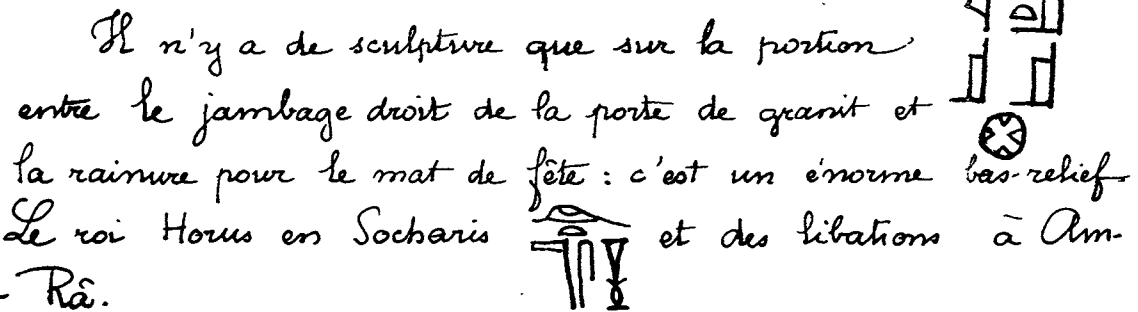 Il n'y a de sculpture que sur la portion
entre le jambage droit de la porte de granit et
la rainure pour le mat de fête : c'est un énorme bas-relief.
Le roi Horus en Socharis et des libations à Am-
- Râ.